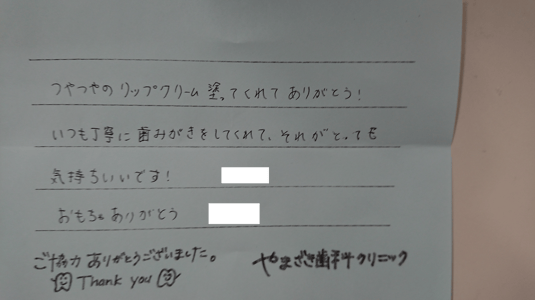 つやつやのリップクリーム塗ってくれてありがとう!
いつも丁寧に歯みがきをしてくれて、それがとっても
気持ちいいです!
おもちゃありがとう
ご協力ありがとうございました。
Thank you
やまざき歯科クリニック